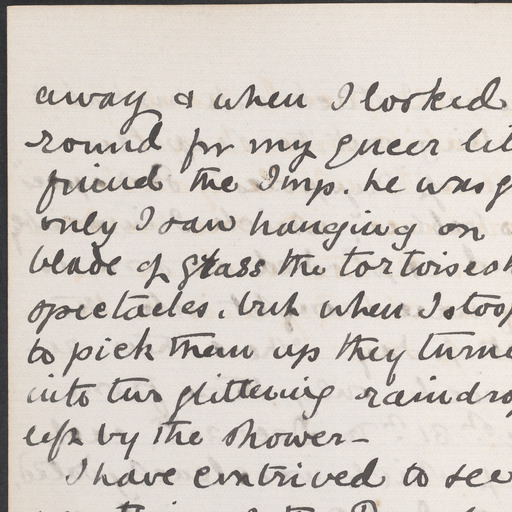 away & when I looked
round for my queer lit
friend the Imp. he was g
only I saw hanging on
blade of grass the tortoisesh
spectacles, but when I stoop
to pick them up they turne
into two glittering raindro
left by the shower -
I have contrived to see